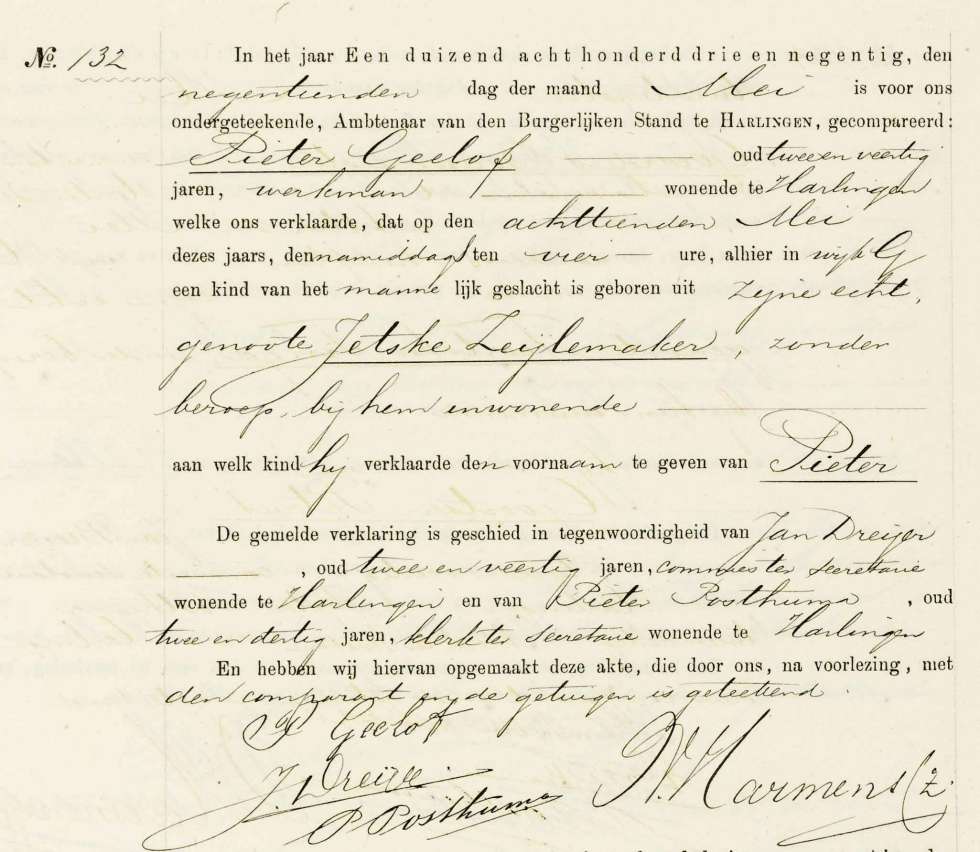 No. 132
In het jaar Een duizend acht honderd drie en negentig, den
negentienden dag der maand Mei is voor ons
ondergeteekende, Ambtenaar van den Burgerlijken Stand te HARLINGEN, gecompareerd:
Pieter Geelof oud twee en veertig
jaren, werkman wonende te Harlingen
welke ons verklaarde, dat op den achttienden Mei
dezes jaars, des namiddags ten vier ure, alhier in wijk G
een kind van het mannelijk geslacht is geboren uit zijne echt,
genoote Jetske Zeijlemaker, zonder
beroep, bij hem inwonende
aan welk kind hij verklaarde den voornaam te geven van Pieter
De gemelde verklaring is geschied in tegenwoordigheid van Jan Dreijer
, oud twee en veertig jaren, commies ter secretarie
wonende te Harlingen en van Pieter Posthuma, oud
twee en dertig jaren, klerk ter secretarie wonende te Harlingen
En hebben wij hiervan opgemaakt deze akte, die door ons, na voorlezing, met
den comparant en de getuigen is geteekend.
P Geelof
J. Dreijer.
P Posthuma
Harmens Cz.